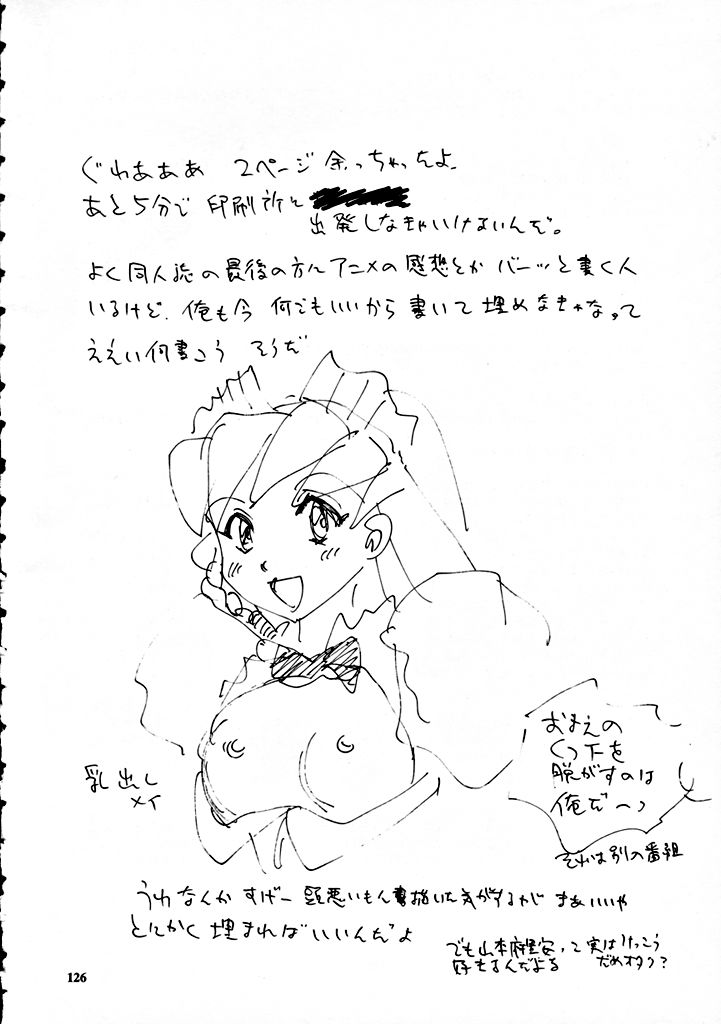 ぐわあああ 2ページ余っちゃったよ
あと5分で 印刷所に
出発しなきゃいけないんだ。
よく同人誌の最後の方にアニメの感想とか バーッと書く人
いるけど、俺も今 何でもいいから書いて埋めなきゃなって
ええい何書こう そうだ
おまえの
くつ下を
脱がすのは
俺だ〜っ
それは別の番組
乳出し
メイ
うわなんか すげー頭悪いもん 描いた気がするが まあいいや
とにかく埋まればいいんだよ
でも山本麻里安って実はけっこう
好きなんだよる だめオタク?
126